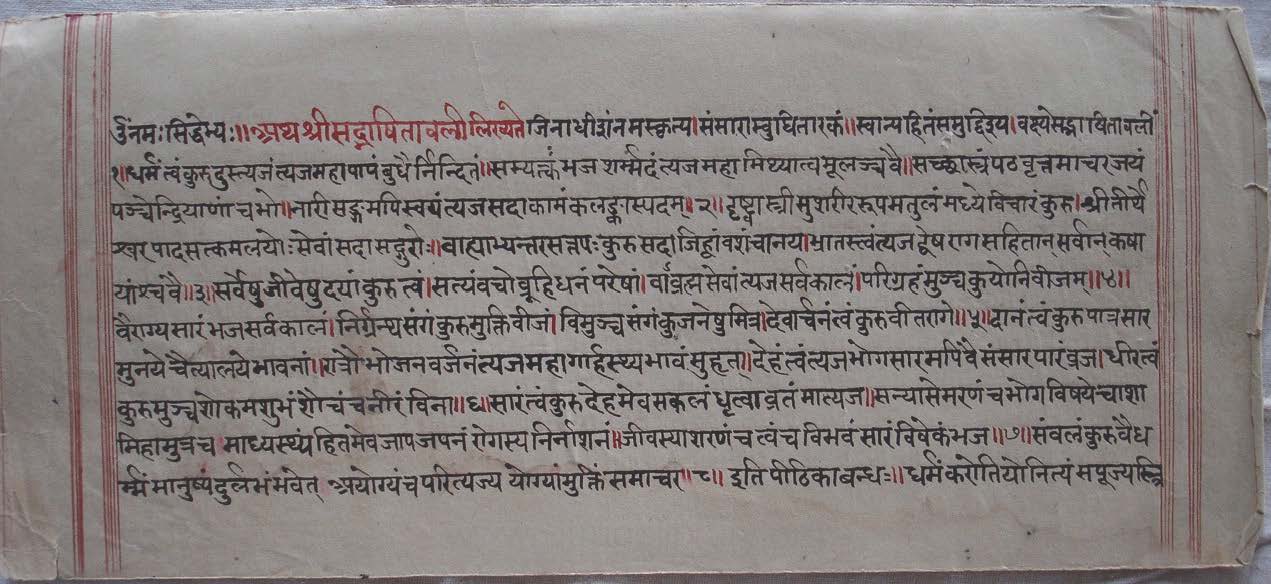 ॐनमःसिद्धेभ्यः॥अथश्रीसद्भाषितावलीलिख्यते जिनाधीशंनमस्कृत्य।संसाराम्बुधितारकं॥स्वान्यहितंसमुद्दिश्य।वक्ष्येसद्भाषितावलीं
१॥धर्मंत्वंकुरुदुस्त्यजंत्यजमहापापंबुधैर्निन्दितं॥सम्यक्त्वंभज शर्म्मदंत्यजमहामिथ्यात्वमूलञ्चवै॥सच्छास्त्रंपठवृत्तमाचरजयं
पञ्चेन्द्रियाणांचभो॥नारीसङ्गमपिस्वयंत्यजसदाकामंकलङ्कास्पदम्।२॥दृष्ट्वास्त्रीसुशरीररूपमतुलंमध्येविचारंकुरु।श्रीतीर्थे
श्वरपादसत्कमलयोःसेवांसदासद्गुरोः॥वाह्याभ्यन्तरसत्तपःकुरुसदाजिह्वांवशंचानय।भ्रातस्त्वंत्यजद्वेषरागसहितान्सर्वान्कषा
यांश्चवै॥३॥सर्वेषुजीवेषुदयांकुरुत्वं।सत्यंवचोब्रूहिधनंपरेषां।र्वाब्रह्मसेवांत्यजसर्वकालं।परिग्रहंमुञ्चकुयोनिवीजम्॥४॥
वैराग्यसारंभजसर्वकालं।निर्ग्रन्थसंगंकुरुमुक्तिवीजं।विमुञ्चसंगंकुजनेषुमित्र।देवार्चनंत्वंकुरुवीतरागे॥५॥दानंत्वंकुरुपात्रसार
मुनयेचैत्यालयेभावनां।रात्रौभोजनवर्जनंत्यजमहागार्हस्थ्यभावंसुहृत्।देहंत्वंत्यजभोगसारमपिवैसंसारपारंव्रज।धीरत्वं
कुरुमुञ्चशोकमशुभंशौचंचनीरंविना॥६॥सारंत्वंकुरुदेहमेवसकलंधृत्वाव्रतंमात्यज॥सन्यासेमरणंचभोगविषयेचाशा
मिहामुत्रच माध्यस्थ्यंहितमेवजापजपनंरोगस्यनिर्नाशनं॥जीवस्याशरणंचत्वंचविभवंसारंविवेकंभज॥७॥संवलंकुरुवैध
र्म्मंमानुष्यंदुर्लभंभवेत् अयोग्यंचपरित्यज्य योग्यांमुक्तिंसमाचर॥८॥ इतिपीठिकाबन्धः॥धर्मंकरोतियोनित्यंसपूज्यस्त्रि